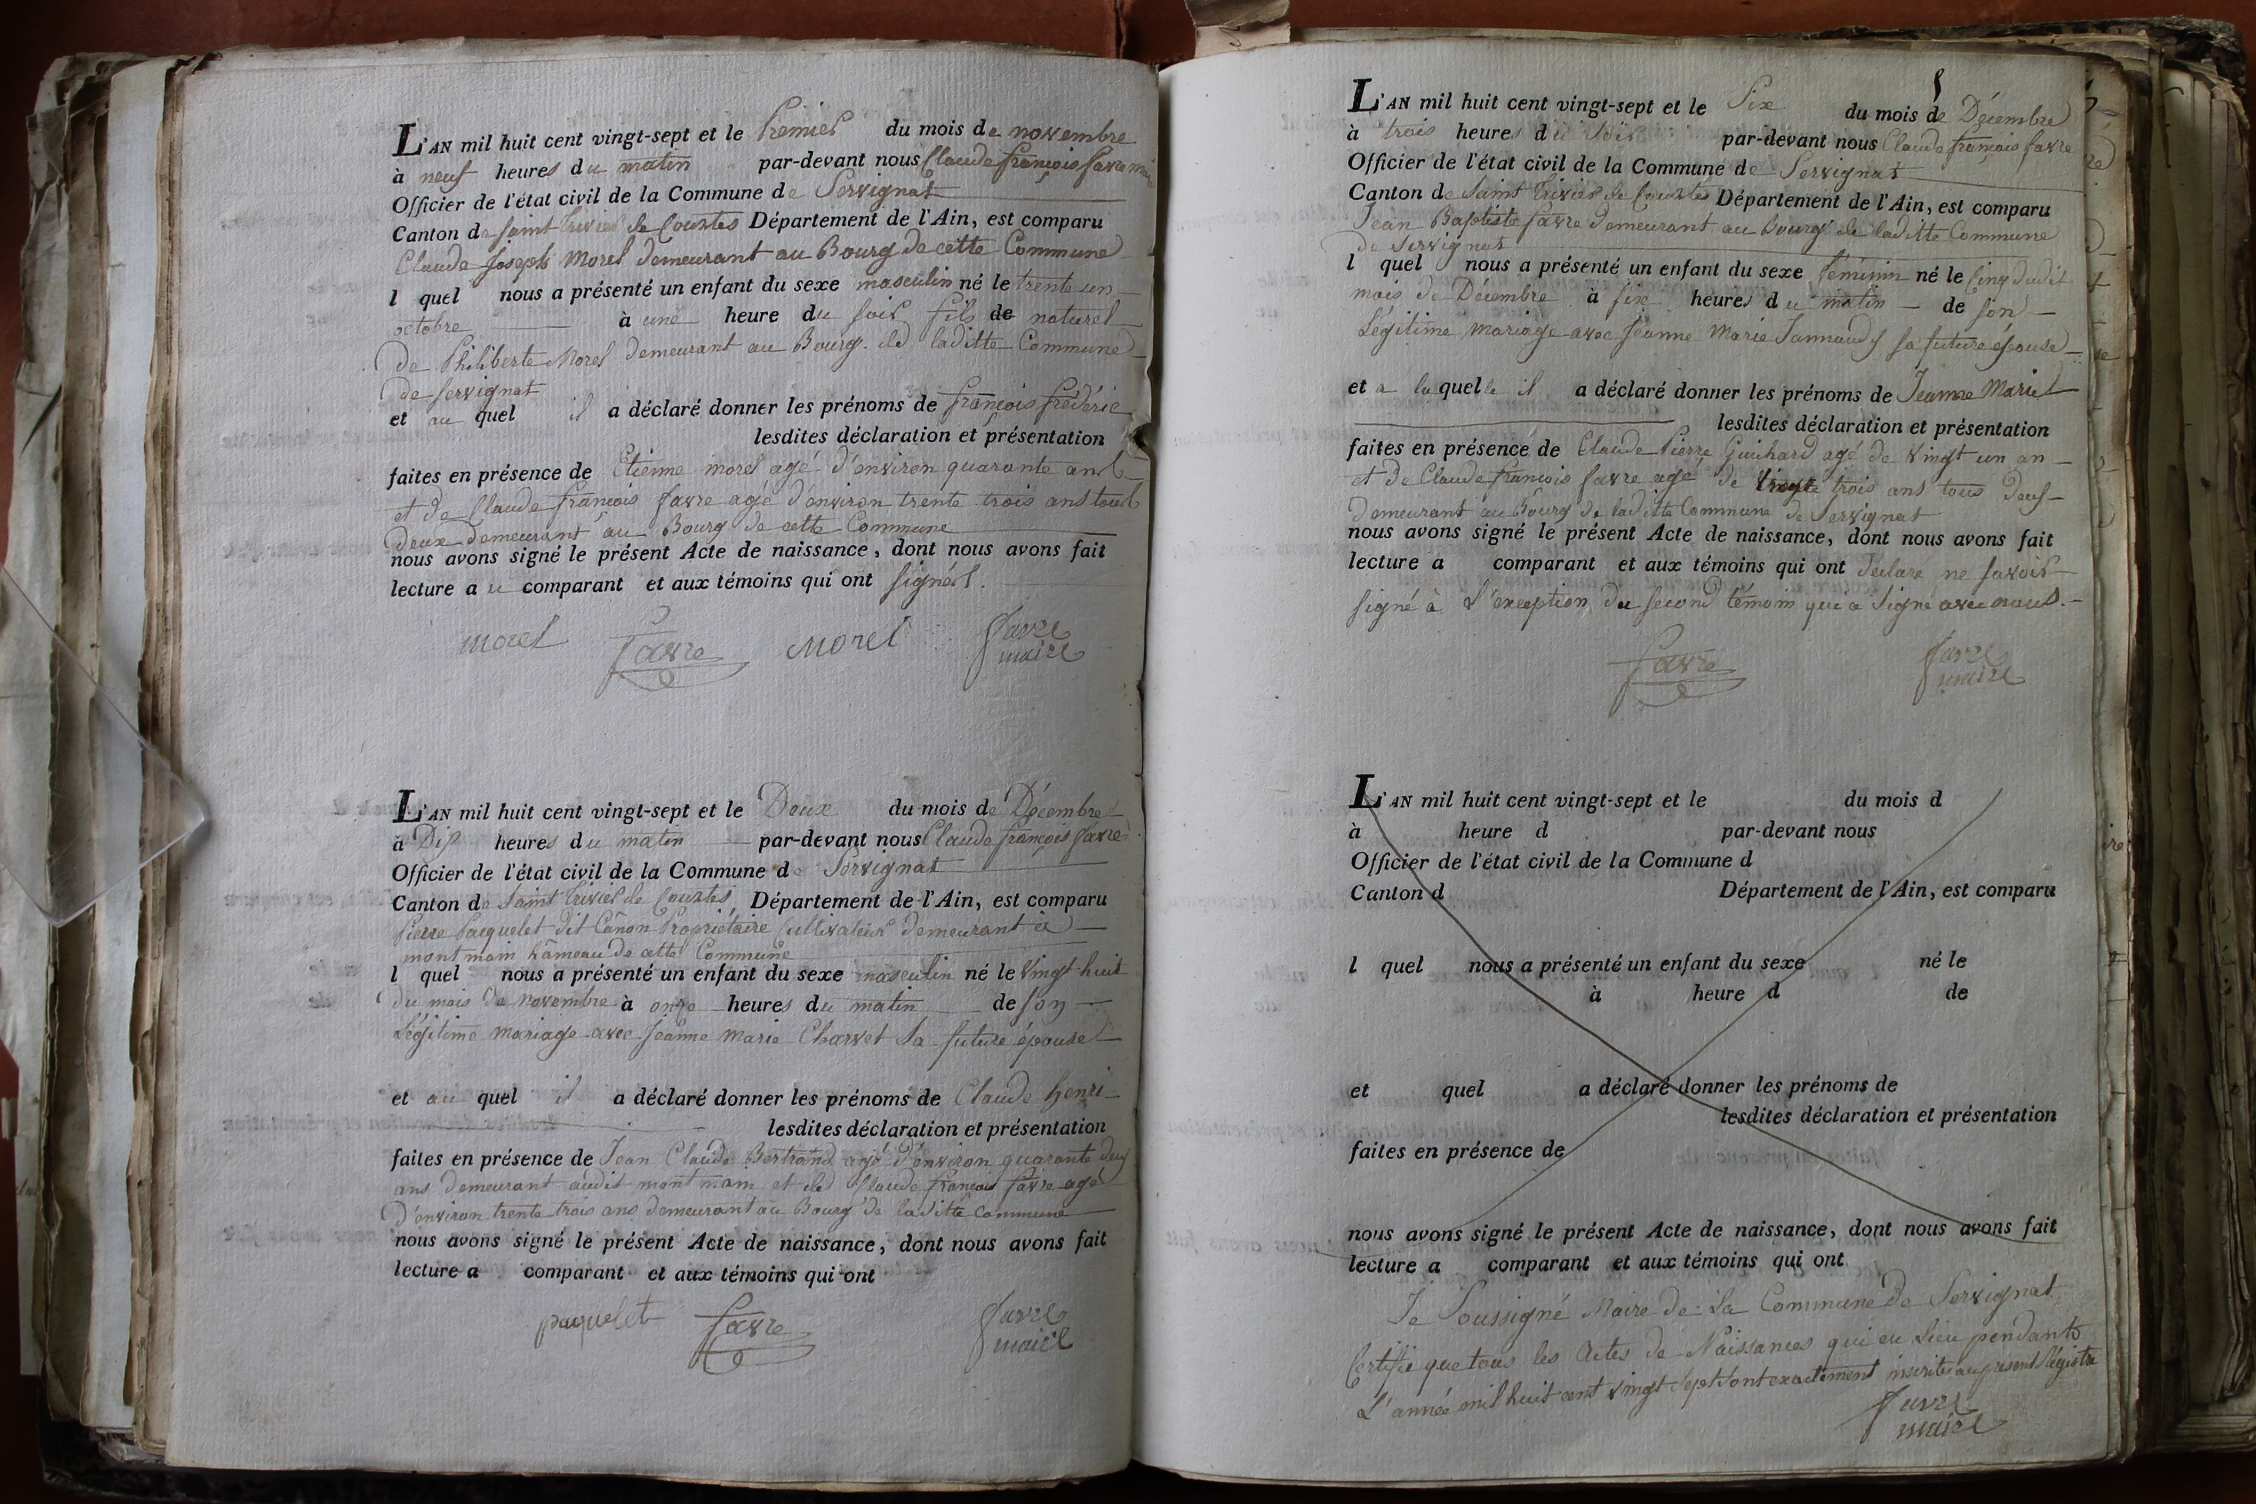 L'AN mil huit cent vingt-sept et le Premier du mois de novembre
à neuf heures du matin par-devant nous Claude françois favre maire
Officier de l'état civil de la Commune de Servignat
Canton de Saint Trivier de Courtes Département de l'Ain, est comparu
Claude Joseph Morel demeurant au Bourg de cette Commune
l quel nous a présenté un enfant du sexe masculin né le trente un
octobre à une heure du soir fils de naturel
de Philiberte Morel demeurant au Bourg de laditte Commune
de Servignat
et au quel il a déclaré donner les prénoms de françois fréderic
lesdites déclaration et présentation
faites en présence de Etienne morel agé d'environ quarante ans
et de Claude françois favre agé d'environ trente trois ans tous
deux demeurant au Bourg de cette Commune
nous avons signé le présent Acte de naissance, dont nous avons fait
lecture au comparant et aux témoins qui ont signés.
morel favre Morel favre
maire
L'AN mil huit cent vingt-sept et le Deux du mois de Décembre
à Dix heures du matin par-devant nous Claude françois favre
Officier de l'état civil de la Commune de Servignat
Canton de Saint Trivier de Courtes Département de l'Ain, est comparu
Pierre Paquelet dit Cânon Propriétaire Cultivateur demeurant à
montmain hâmeau de cette Commune
l quel nous a présenté un enfant du sexe masculin né le vingt huit
du mois de novembre à onze heures du matin de son
Légitime mariage avec Jeanne Marie Charvet sa future épouse
et au quel il a déclaré donner les prénoms de Claude henri
lesdites déclaration et présentation
faites en présence de Jean Claude Bertrand agé d'environ quarante deux
ans demeurant audit montmain et de Claude françois favre agé
d'environ trente trois ans demeurant au Bourg de laditte Commune
nous avons signé le présent Acte de naissance, dont nous avons fait
lecture a comparant et aux témoins qui ont
paquelet favre favre
maire
L'AN mil huit cent vingt-sept et le Six du mois de Décembre
à trois heures du soir par-devant nous Claude françois favre
Officier de l'état civil de la Commune de Servignat
Canton de Saint Trivier de Courtes Département de l'Ain, est comparu
Jean Baptiste favre demeurant au Bourg de laditte Commune
de Servignat
l quel nous a présenté un enfant du sexe féminin né le Cinq dudit
mois de Décembre à six heures du matin de son
Légitime mariage avec Jeanne Marie Jannaud sa future épouse
et a laquelle il a déclaré donner les prénoms de Jeanne Marie
lesdites déclaration et présentation
faites en présence de Claude Pierre Guichard agé de vingt un an
et de Claude françois favre agé de trente trois ans tous deux
demeurant au Bourg de laditte Commune de Servignat
nous avons signé le présent Acte de naissance, dont nous avons fait
lecture a comparant et aux témoins qui ont declare ne savoir
signé à L'exception du second témoin qui a Signé avec nous.
favre favre
maire
L'AN mil huit cent vingt-sept et le du mois d
à heure d par-devant nous
Officier de l'état civil de la Commune d
Canton d Département de l'Ain, est comparu
l quel nous a présenté un enfant du sexe né le
à heure d de
et quel a déclaré donner les prénoms de
lesdites déclaration et présentation
faites en présence de
nous avons signé le présent Acte de naissance, dont nous avons fait
lecture a comparant et aux témoins qui ont
Je Soussigné Maire de la Commune de Servignat
Certifie que tous les Actes de Naissances qui eu Lieu pendants
L'année mil huit cent vingt Sept sont exactement inscrites au présent Régistre
favre
maire